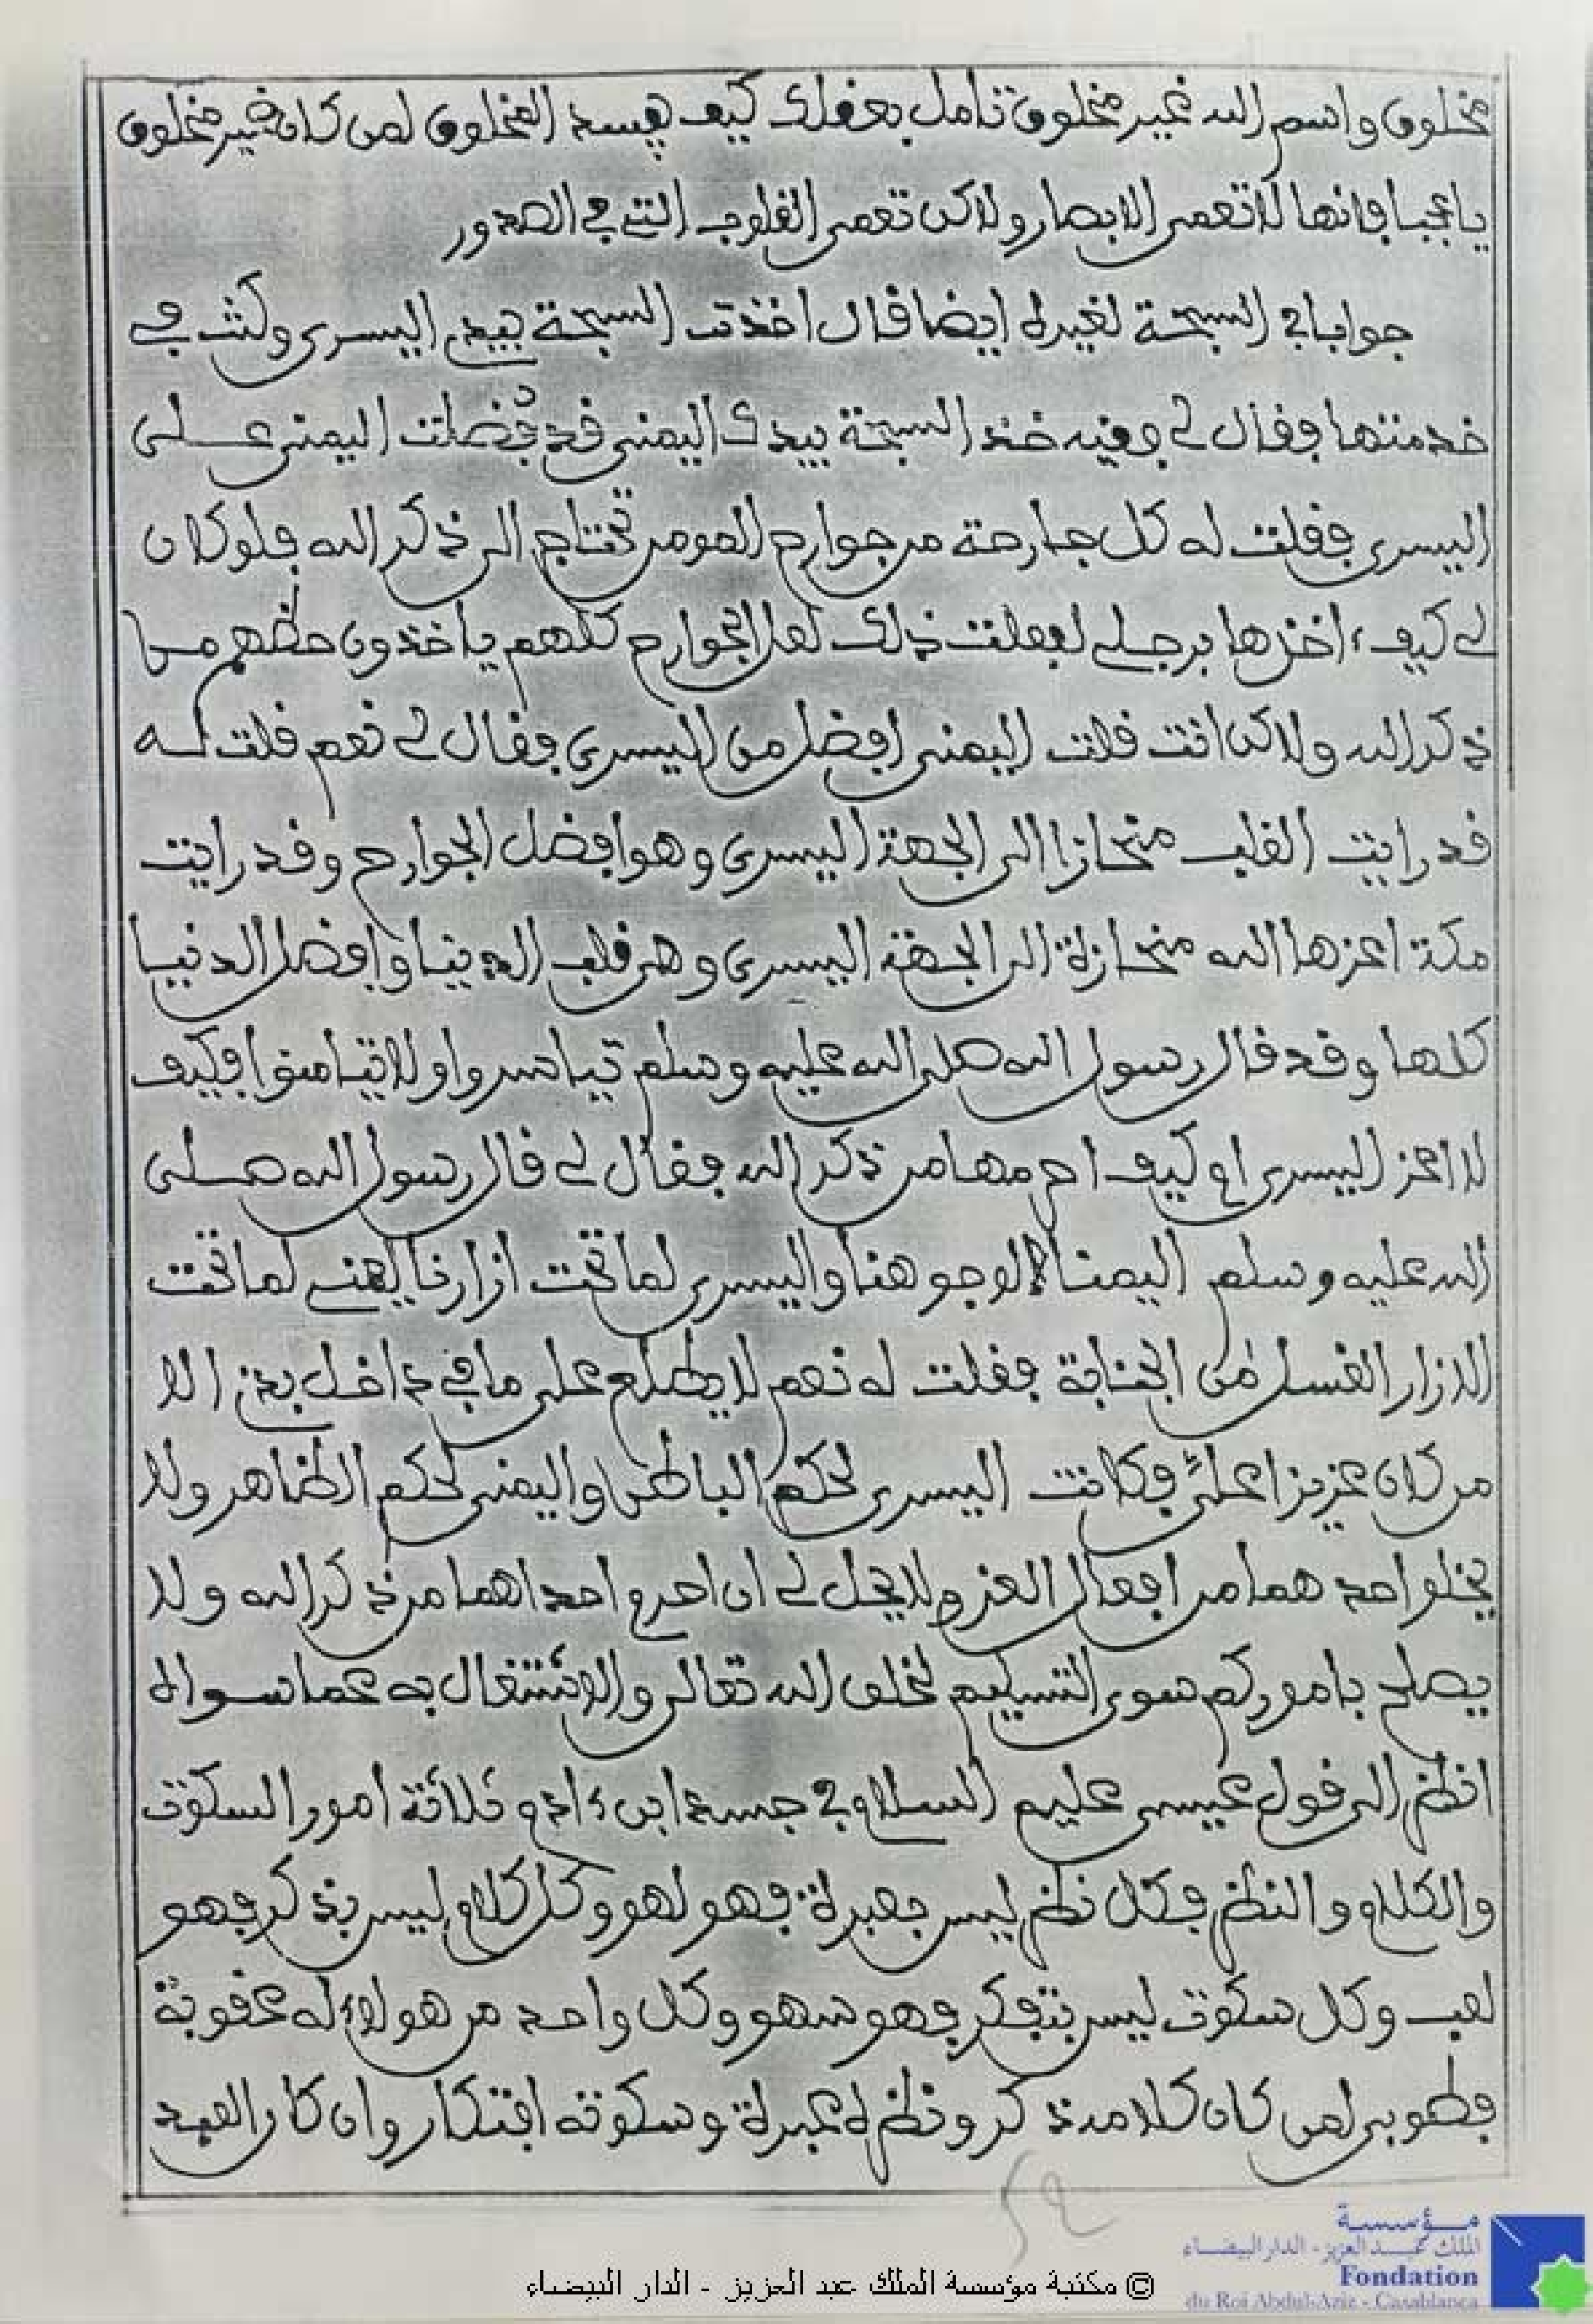 مخلوق واسم الله غير مخلوق تامل بعقلك كيف يسد المخلوق لمن كان غير مخلوق
يا عجبا فانها لا تعمى الابصار ولاكن تعمى القلوب التي في الصدور
جوابا في السبحة لغيره ايضا قال اخذت السبحة بيدي اليسرى وكنت في
خدمتها فقال لي فقيه خذ السبحة بيدك اليمنى قد فضلت اليمنى على
اليسرى فقلت له كل جارحة من جوارح المومن تحتاج الى ذكر الله فلو كان
لي كيف اخزها برجلي لفعلت ذلك لعل الجوارح كلهم ياخذون حظهم من
ذكر الله ولاكن انت قلت اليمنى افضل من اليسرى فقال لي نعم قلت له
قد رايت القلب منحازا الى الجهة اليسرى وهو افضل الجوارح وقد رايت
مكة اعزها الله منحازة الى الجهة اليسرى وهي قلب الدنيا وافضل الدنيا
كلها وقد قال رسول الله صلى الله عليه وسلم تياسروا ولا تيامنوا فكيف
لا اعز اليسرى او كيف احرمها من ذكر الله فقال لي قال رسول الله صلى
الله عليه وسلم اليمنا لوجوهنا واليسرى لما تحت ازارنا يعني لما تحت
الازار الغسل من الجنابة فقلت له نعم لا يطلع على ما في داخل بدني الا
من كان عزيزا علي فكانت اليسرى لحكم الباطن واليمنى لحكم الظاهر ولا
يخلو احد هما من افعال العز ولا يحل لي ان احرم احداهما من ذكر الله ولا
يصلح باموركم سوى التسليم لخلق الله تعالى والاشتغال به عما سواه
انظر الى قول عيسى عليه السلام في جسد ابن ءادم ثلاثة امور السكوت
والكلام والنظر فكل نظر ليس بعبرة فهو لهو وكل كلام ليس بذكر فهو
لعب وكل سكوت ليس بتفكر فهو سهو وكل واحد من هولاء له عقوبة
فطوبى لمن كان كلامه ذكر ونظره عبرة وسكوته افتكار وان كان العبد
52
مؤسسة
الملك عبد العزيز - الدار البيضاء
Fondation
du Roi Abdul-Aziz - Casablanca
© مكتبة مؤسسة الملك عبد العزيز - الدار البيضاء